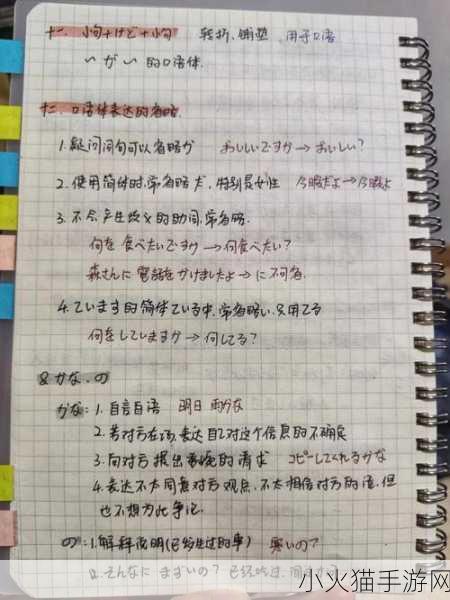 十一. 小句+けど+小句 转折、铺垫、用于口语
いがい的口语体.
十二. 口语体表达的省略.
1.疑问词句可以省略か おいしいですか→おいしい?
2.使用简体时.常省略だ.特别是女性 今暇だよ→今暇よ
3.不会产生歧义的助词.常省略.
何を食べたいですか→何食べたい?
森さんに電話をかけましたよ→に不可省.
4.ています的简体ている中.常省略い.只用てる
何をしていますか→何してる?
&かな、の
かな:1.自言自语 明日雨かな
2.若对方在场.表达自己对这个信息的不确定
3.向对方提出委婉的请求 コピーしてくれるかな
4.表达不太同意对方观点.不太相信对方的话.但
也不想为此争论.
の:1.解释说明(已发生过的事) 寒いの?
2.そんなにまずいの?
小火猫手游网